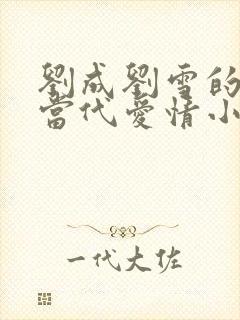 劉成劉雪的
當代愛情小
一代大佐